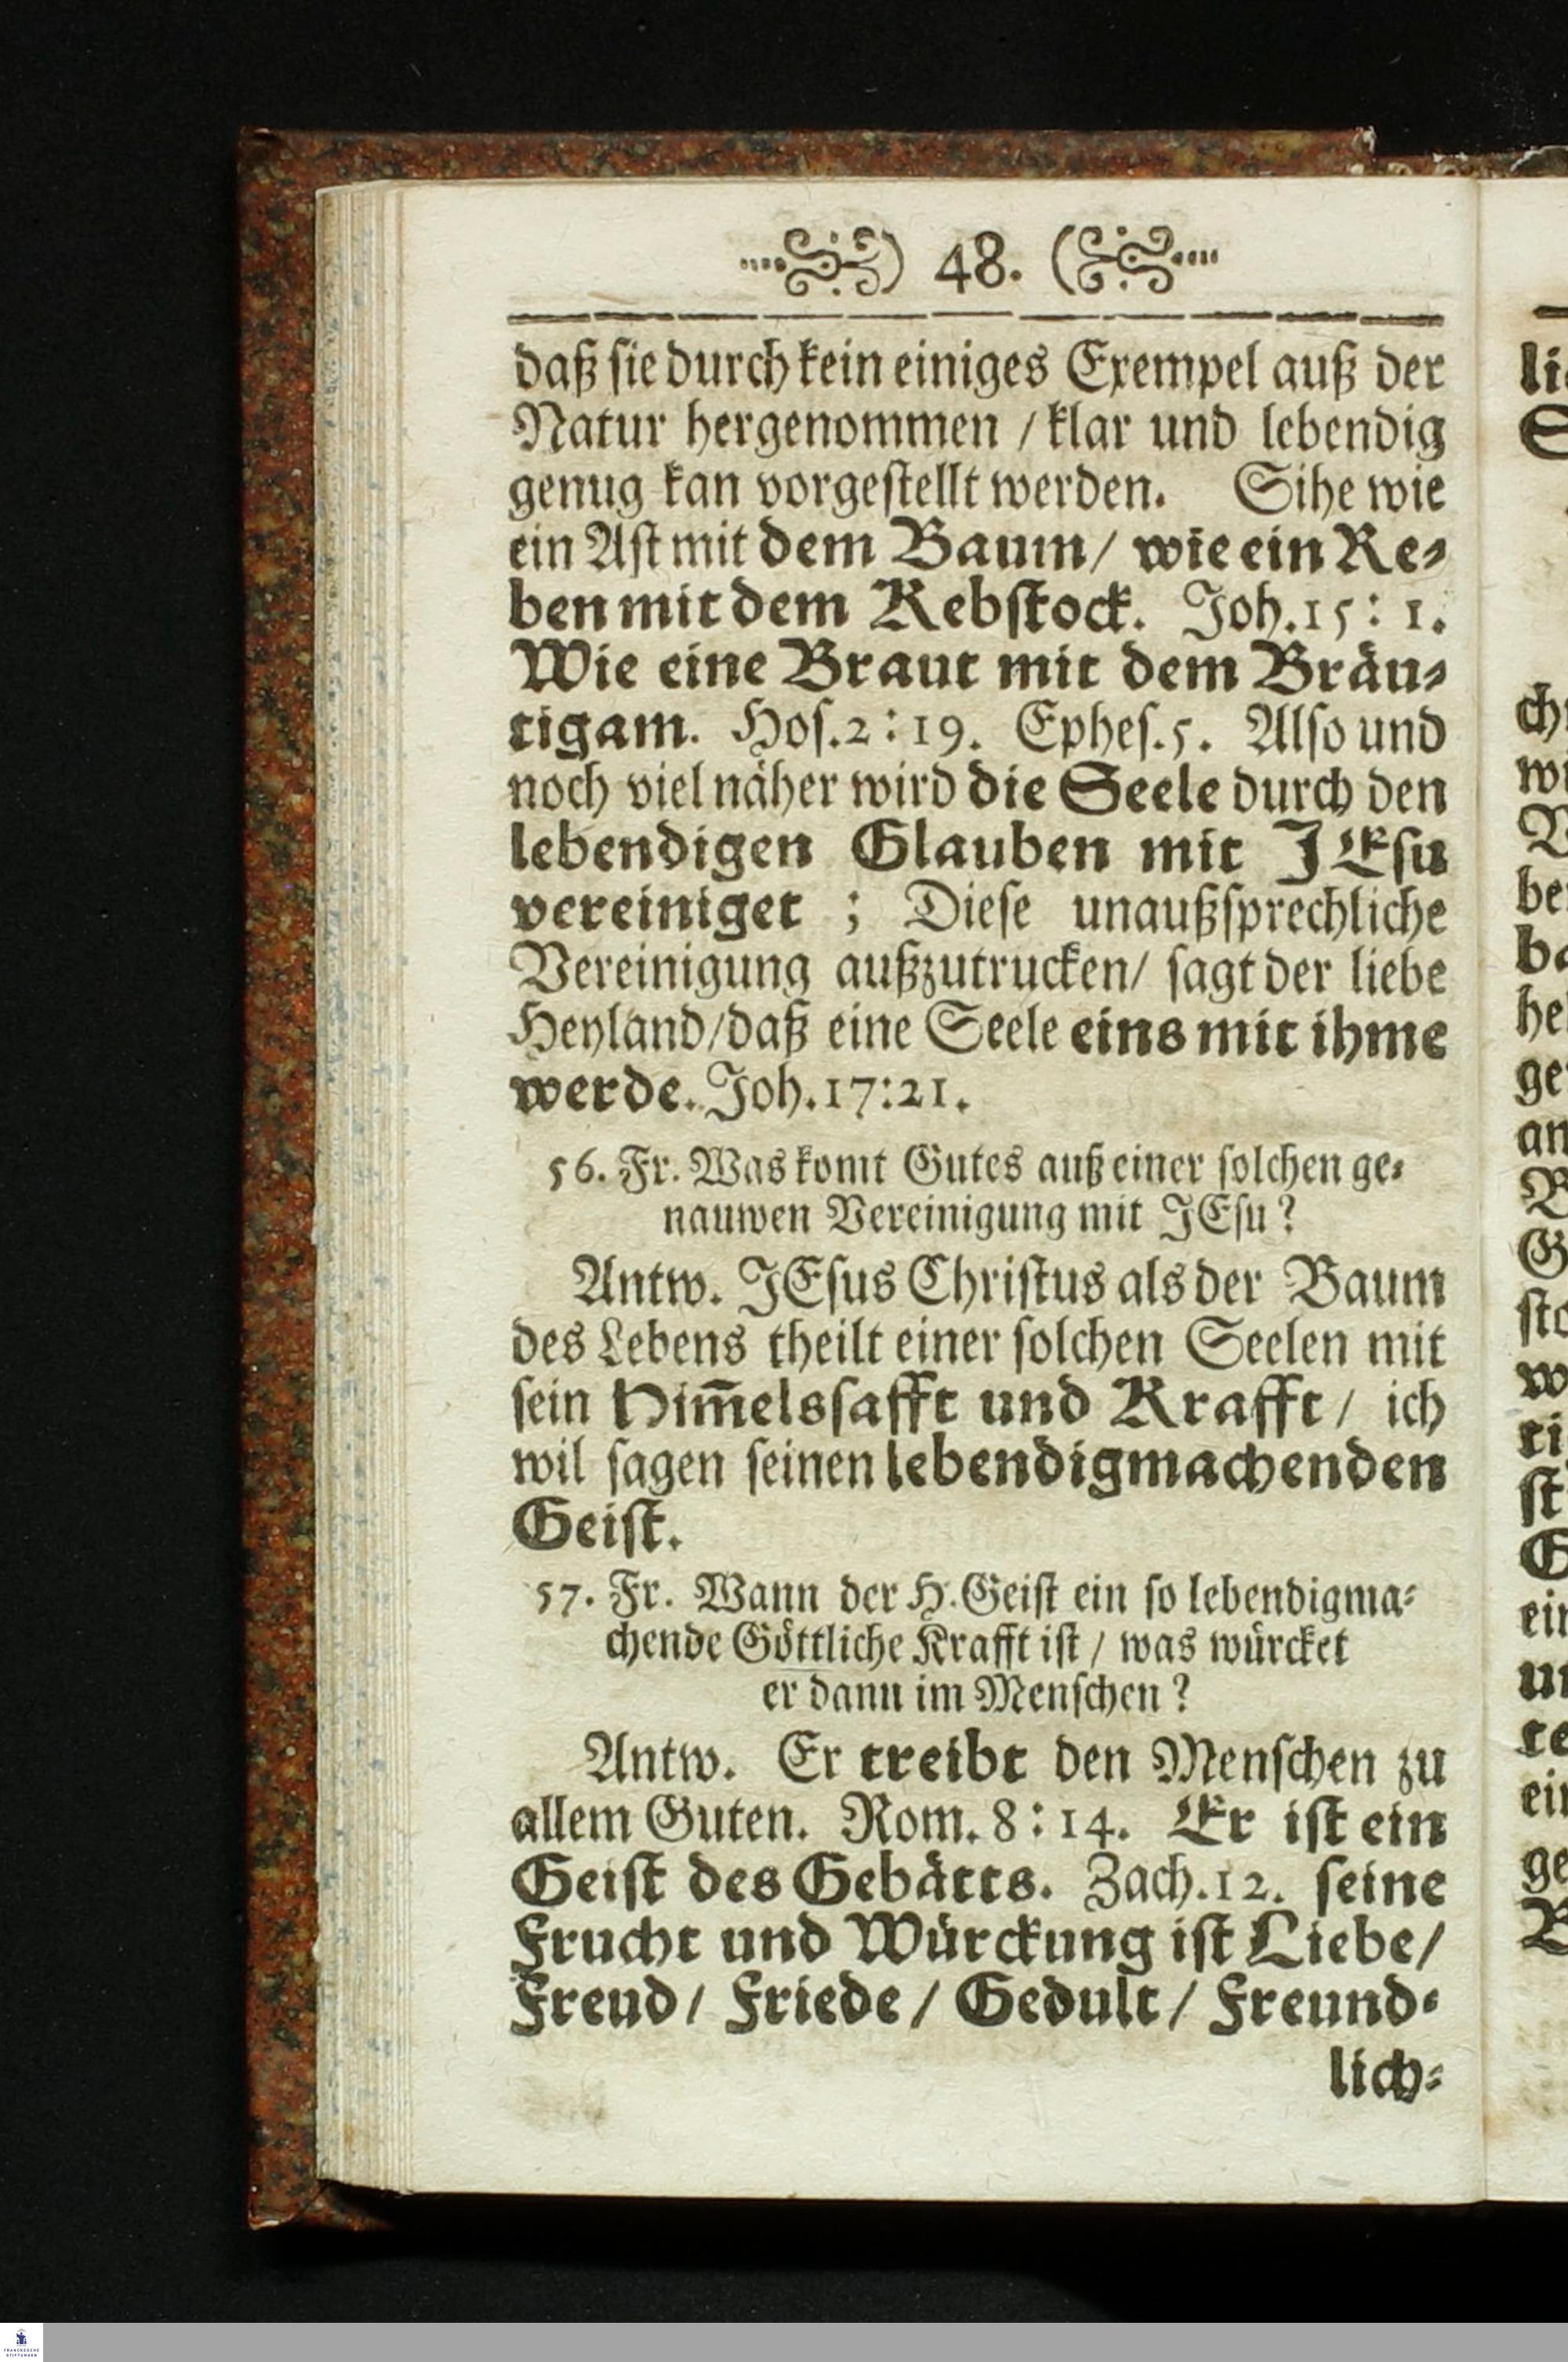 ) 48. (
daß sie durch kein einiges Exempel auß der
Natur hergenommen / klar und lebendig
genug kan vorgestellt werden. Sihe wie
ein Ast mit dem Baum / wie ein Re-
ben mit dem Rebstock. Joh. 15: 1.
Wie eine Braut mit dem Bräu-
tigam. Hos. 2: 19. Ephes. 5. Also und
noch viel näher wird die Seele durch den
lebendigen Glauben mit JEsu
vereiniget ; Diese unaußsprechliche
Vereinigung außzutrucken / sagt der liebe
Heyland / daß eine Seele eins mit ihme
werde. Joh. 17:21.
56. Fr. Was komt Gutes auß einer solchen ge-
nauwen Vereinigung mit JEsu ?
Antw. JEsus Christus als der Baum
des Lebens theilt einer solchen Seelen mit
sein Him̄elssafft und Krafft / ich
wil sagen seinen lebendigmachenden
Geist.
57. Fr. Wann der H. Geist ein so lebendigma-
chende Göttliche Krafft ist / was würcket
er dann im Menschen ?
Antw. Er treibt den Menschen zu
allem Guten. Rom. 8: 14. Er ist ein
Geist des Gebätts. Zach. 12. seine
Frucht und Würckung ist Liebe /
Freud / Friede / Gedult / Freund-
lich-
FRANCKESCHE
STIFTUNGEN